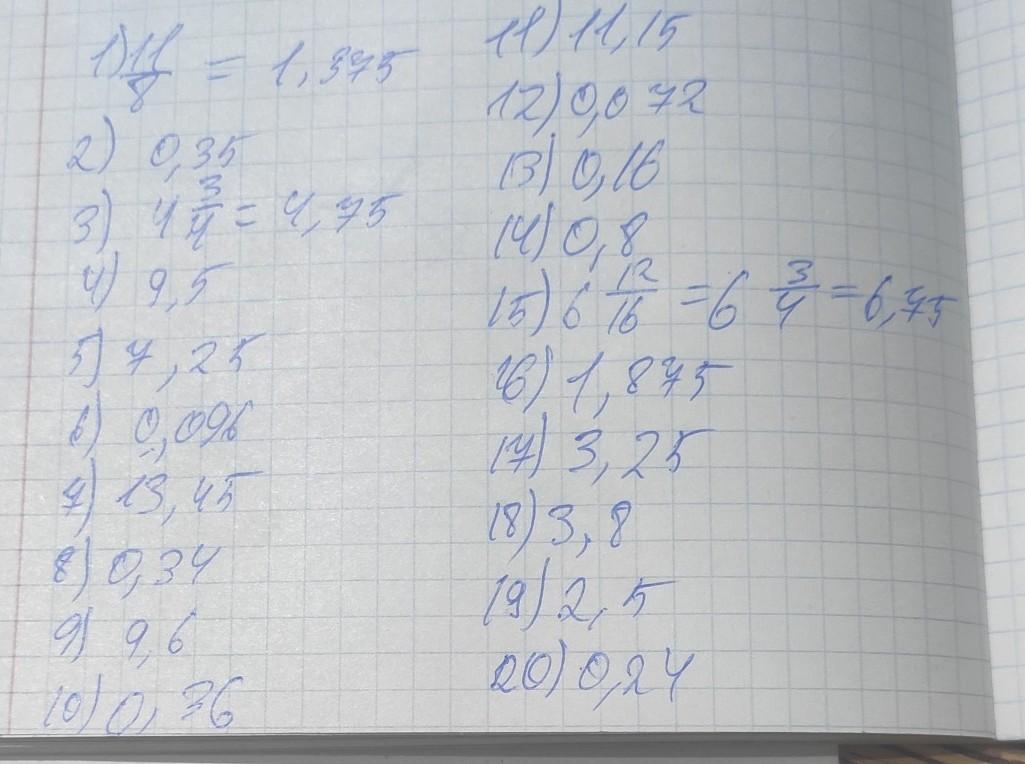 1) 11/8 = 1,375
2) 0,35
3) 4 3/4 = 4,75
4) 9,5
5) 7,25
6) 0,096
7) 13,45
8) 0,34
9) 9,6
10) 0,36
11) 11,15
12) 0,072
13) 0,16
14) 0,8
15) 6 12/16 = 6 3/4 = 6,75
16) 1,875
17) 3,25
18) 3,8
19) 2,5
20) 0,24